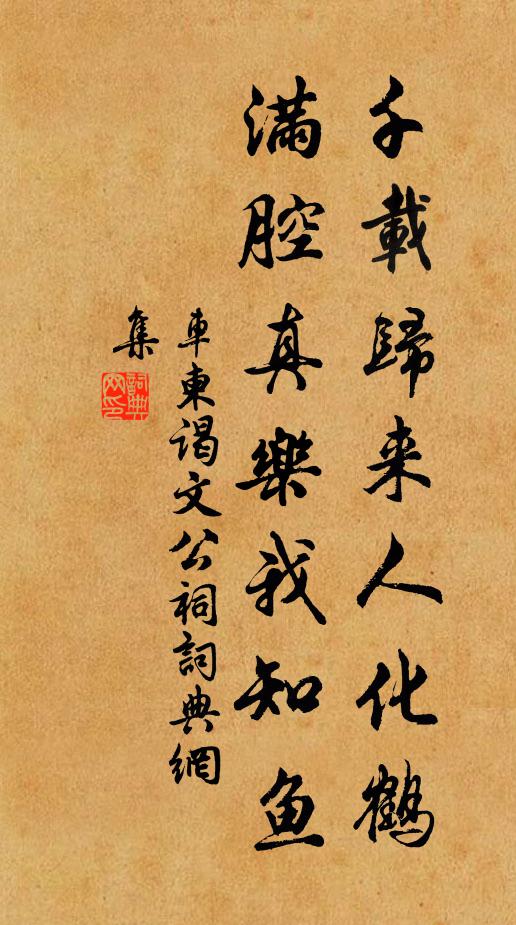 千載歸来人化鶴
滿腔真樂我知魚
車東謁文公祠詞典網
集
詞典网印